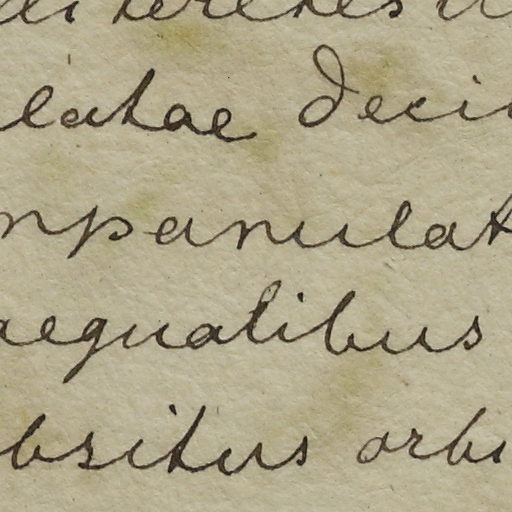 teretes
latae deci
mpanulat
aequalibus
bsitus orbi